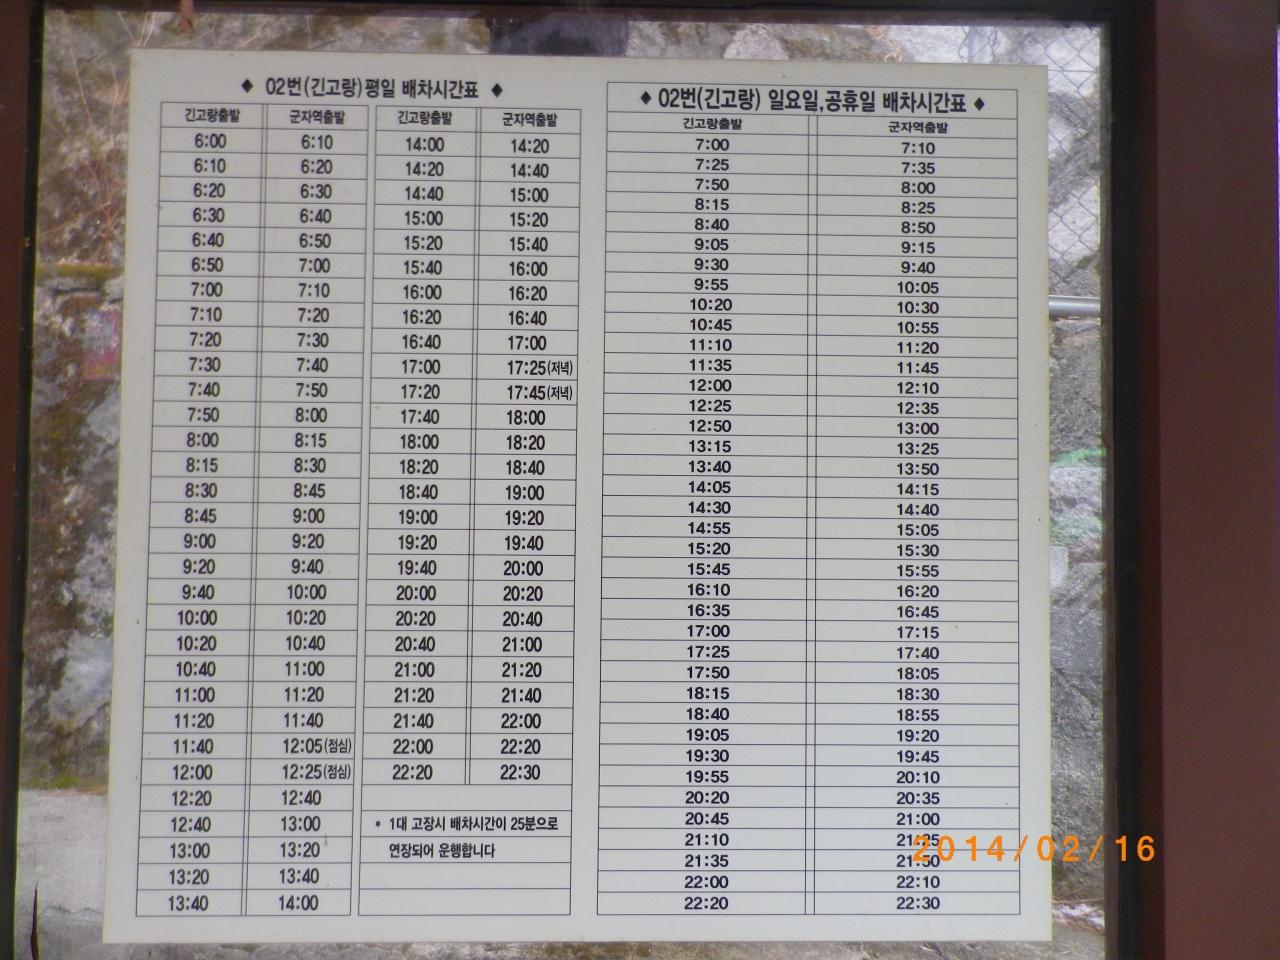 ◆ 02번(긴고랑)평일 배차시간표 ◆
긴고랑출발 군자역출발 긴고랑출발 군자역출발
6:00 6:10 14:00 14:20
6:10 6:20 14:20 14:40
6:20 6:30 14:40 15:00
6:30 6:40 15:00 15:20
6:40 6:50 15:20 15:40
6:50 7:00 15:40 16:00
7:00 7:10 16:00 16:20
7:10 7:20 16:20 16:40
7:20 7:30 16:40 17:00
7:30 7:40 17:00 17:25(저녁)
7:40 7:50 17:20 17:45(저녁)
7:50 8:00 17:40 18:00
8:00 8:15 18:00 18:20
8:15 8:30 18:20 18:40
8:30 8:45 18:40 19:00
8:45 9:00 19:00 19:20
9:00 9:20 19:20 19:40
9:20 9:40 19:40 20:00
9:40 10:00 20:00 20:20
10:00 10:20 20:20 20:40
10:20 10:40 20:40 21:00
10:40 11:00 21:00 21:20
11:00 11:20 21:20 21:40
11:20 11:40 21:40 22:00
11:40 12:05(점심) 22:00 22:20
12:00 12:25(점심) 22:20 22:30
12:20 12:40
12:40 13:00
13:00 13:20
13:20 13:40
13:40 14:00
* 1대 고장시 배차시간이 25분으로
연장되어 운행합니다
◆ 02번(긴고랑) 일요일,공휴일 배차시간표 ◆
긴고랑출발 군자역출발
7:00 7:10
7:25 7:35
7:50 8:00
8:15 8:25
8:40 8:50
9:05 9:15
9:30 9:40
9:55 10:05
10:20 10:30
10:45 10:55
11:10 11:20
11:35 11:45
12:00 12:10
12:25 12:35
12:50 13:00
13:15 13:25
13:40 13:50
14:05 14:15
14:30 14:40
14:55 15:05
15:20 15:30
15:45 15:55
16:10 16:20
16:35 16:45
17:00 17:15
17:25 17:40
17:50 18:05
18:15 18:30
18:40 18:55
19:05 19:20
19:30 19:45
19:55 20:10
20:20 20:35
20:45 21:00
21:10 21:25
21:35 21:50
22:00 22:10
22:20 22:30
2014/02/16